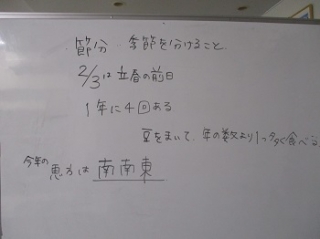 節分 季節を分けること
2/3は立春の前日
1年に4回ある
豆をまいて、年の数より1つ多く食べる
今年の恵方は 南南東